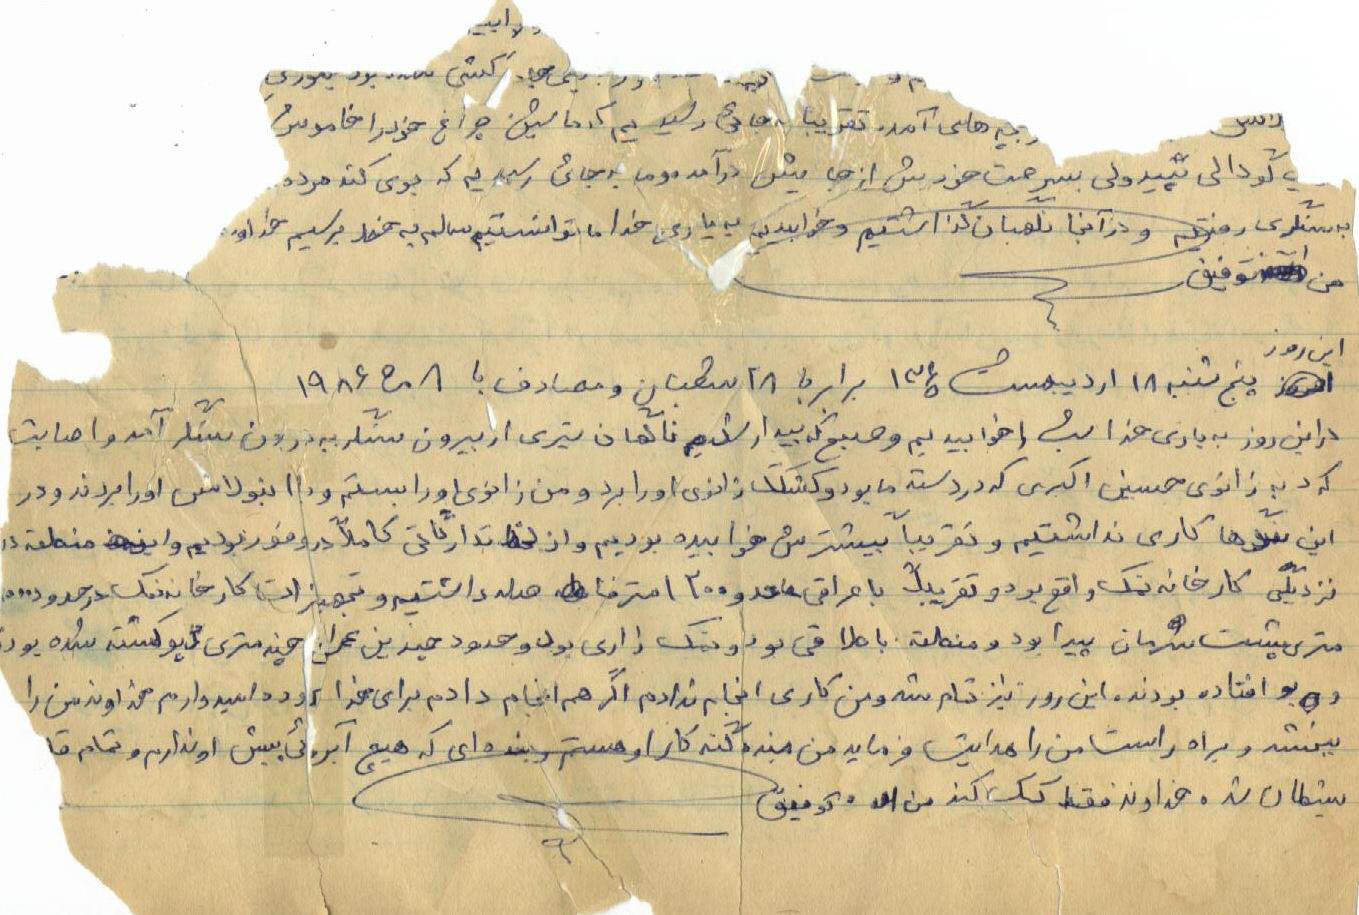 کشتی شده بود بطوری
تقریبا به جائی رسیدیم که ماشین چراغ خود را خاموش
گودالی تپید ولی بسرعت خودش از جایش درآمد و ما به جائی رسیدیم که بوی گند مرده
به سنگری رفتیم و در آنجا نگهبان گذاشتیم و خوابیدیم به یاری خدا ما توانستیم سالم به خط برسیم خداوند
من الله توفیق
این روز
پنج شنبه ۱۸ اردیبهشت ۱۳۶۵ برابر با ۲۸ شعبان و مصادف با ۸ می ۱۹۸۶
در این روز به یاری خدا شب را خوابیدیم و صبح که بیدار شدیم ناگهان تیری از بیرون سنگر به درون سنگر آمد و اصابت
کرد به زانوی حسین اکبری که در دسته ما بود و کشکک زانوی او را برد و من زانوی او را بستم و با آمبولانس او را بردند و در
این سنگرها کاری نداشتیم و تقریباً بیشترش خوابیده بودیم و از تدارکاتی کاملاً در وفور بودیم و این منطقه در
نزدیکی کارخانه نمک واقع بود و تقریباً با عراقی حدود ۱۲۰۰ متر فاصله داشتیم و تجهیزات کارخانه نمک در حدود
متری پشت سرمان پیدا بود و منطقه باطلاقی بود و نمک زاری بود و حدود چندین عراقی چند متری کشته شده بودند
و افتاده بودند این روز نیز تمام شد و من کاری انجام ندادم اگر هم انجام دادم برای خدا بوده امیدوارم خداوند من را
ببخشد و براه راست من را هدایت فرماید من بنده گنه کار او هستم بنده ای که هیچ آبروئی پیش او ندارم و تمام
شیطان شده خداوند فقط کمک کند من الله توفیق